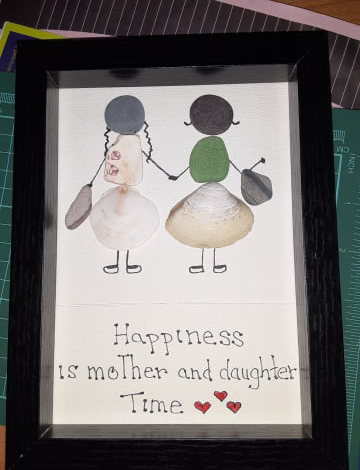 Happiness
is moTher and daughter
Time